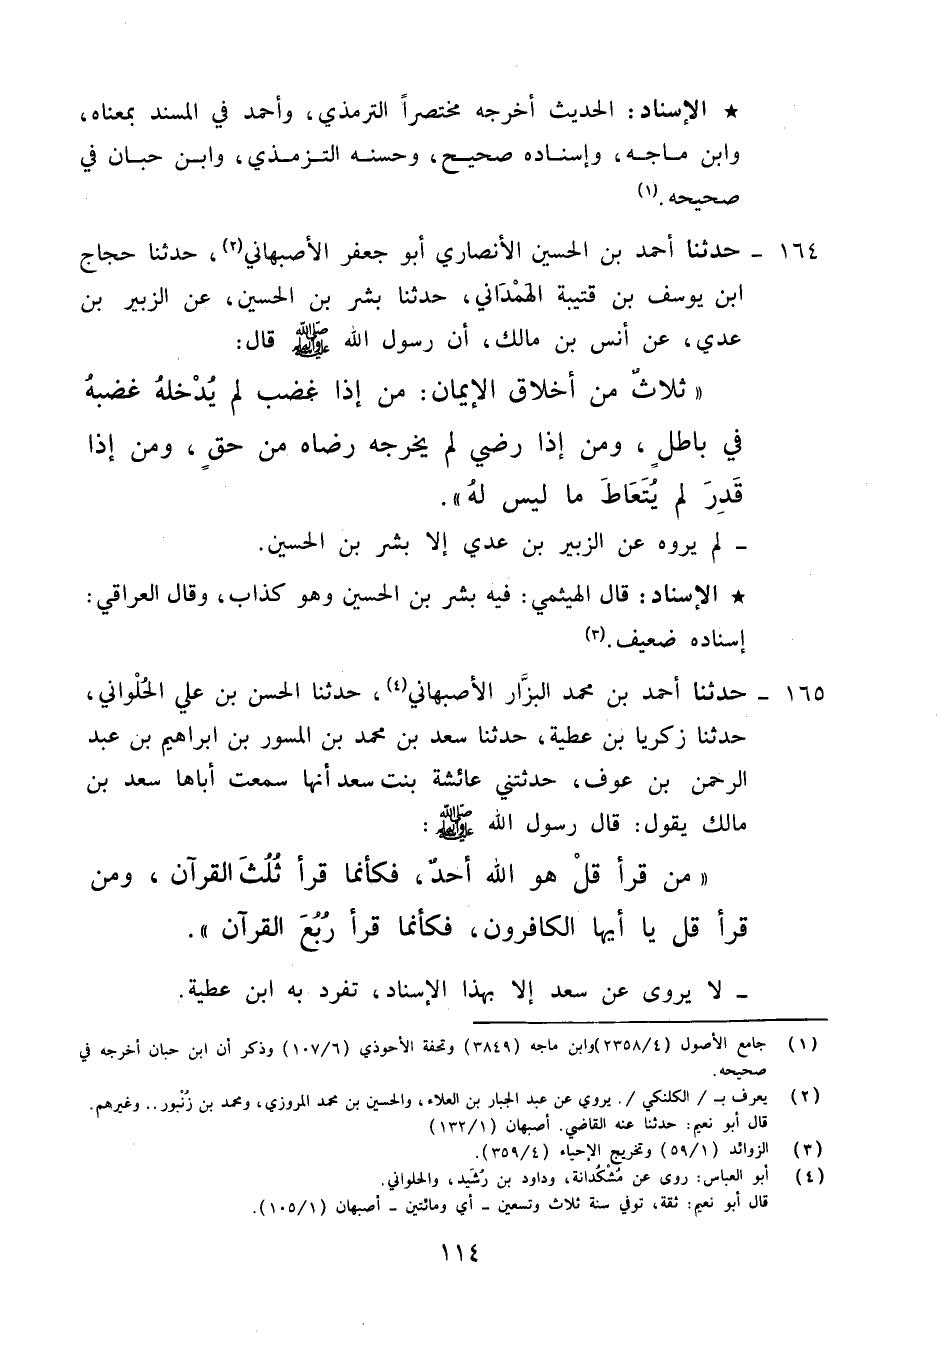 ★ الإسناد: الحديث أخرجه مختصراً الترمذي، وأحمد في المسند بمعناه،
وابن ماجه، وإسناده صحيح، وحسنه الترمذي، وابن حبان في
صحيحه.(١)
١٦٤ ـ حدثنا أحمد بن الحسين الأنصاري أبو جعفر الأصبهاني(٢)، حدثنا حجاج
ابن يوسف بن قتيبة الهمْدَاني، حدثنا بشر بن الحسين، عن الزبير بن
عدي، عن أنس بن مالك، أن رسول الله ﷺ قال:
« ثلاثٌ من أخلاق الإيمان: من إذا غضب لم يُدْخلهُ غضبهُ
في باطلٍ، ومن إذا رضي لم يخرجه رضاه من حقٍ، ومن إذا
قَدِرَ لم يُتَعَاطَ ما ليس لهُ».
ـ لم يروه عن الزبير بن عدي إلا بشر بن الحسين.
★ الإسناد: قال الهيثمي: فيه بشر بن الحسين وهو كذاب، وقال العراقي:
إسناده ضعيف.(٣)
١٦٥ ـ حدثنا أحمد بن محمد البزَّار الأصبهاني(٤)، حدثنا الحسن بن علي الحُلْواني،
حدثنا زكريا بن عطية، حدثنا سعد بن محمد بن المسور بن ابراهيم بن عبد
الرحمن بن عوف، حدثتني عائشة بنت سعد أنها سمعت أباها سعد بن
مالك يقول: قال رسول الله ﷺ:
« من قرأ قلْ هو الله أحدٌ، فكأنما قرأ ثُلُثَ القرآن، ومن
قرأ قل يا أيها الكافرون، فكأنما قرأ رُبُعَ القرآن ».
ـ لا يروى عن سعد إلا بهذا الإسناد، تفرد به ابن عطية.
(١) جامع الأصول (٢٣٥٨/٤)وابن ماجه (٣٨٤٩) وتحفة الأحوذي (١٠٧/٦) وذكر أن ابن حبان أخرجه في
صحيحه.
(٢) يعرف بـ / الكلنكي /. يروي عن عبد الجبار بن العلاء، والحسين بن محمد المروزي، ومحمد بن زُنْبور.. وغيرهم.
قال أبو نعيم: حدثنا عنه القاضي. أصبهان (١٣٢/١)
(٣) الزوائد (٥٩/١) وتخريج الإحياء (٣٥٩/٤).
(٤) أبو العباس: روى عن مُشْكُدانة، وداود بن رُشَيد، والحلواني.
قال أبو نعيم: ثقة، توفي سنة ثلاث وتسعين ـ أي ومائتين ـ أصبهان (١٠٥/١).
١١٤